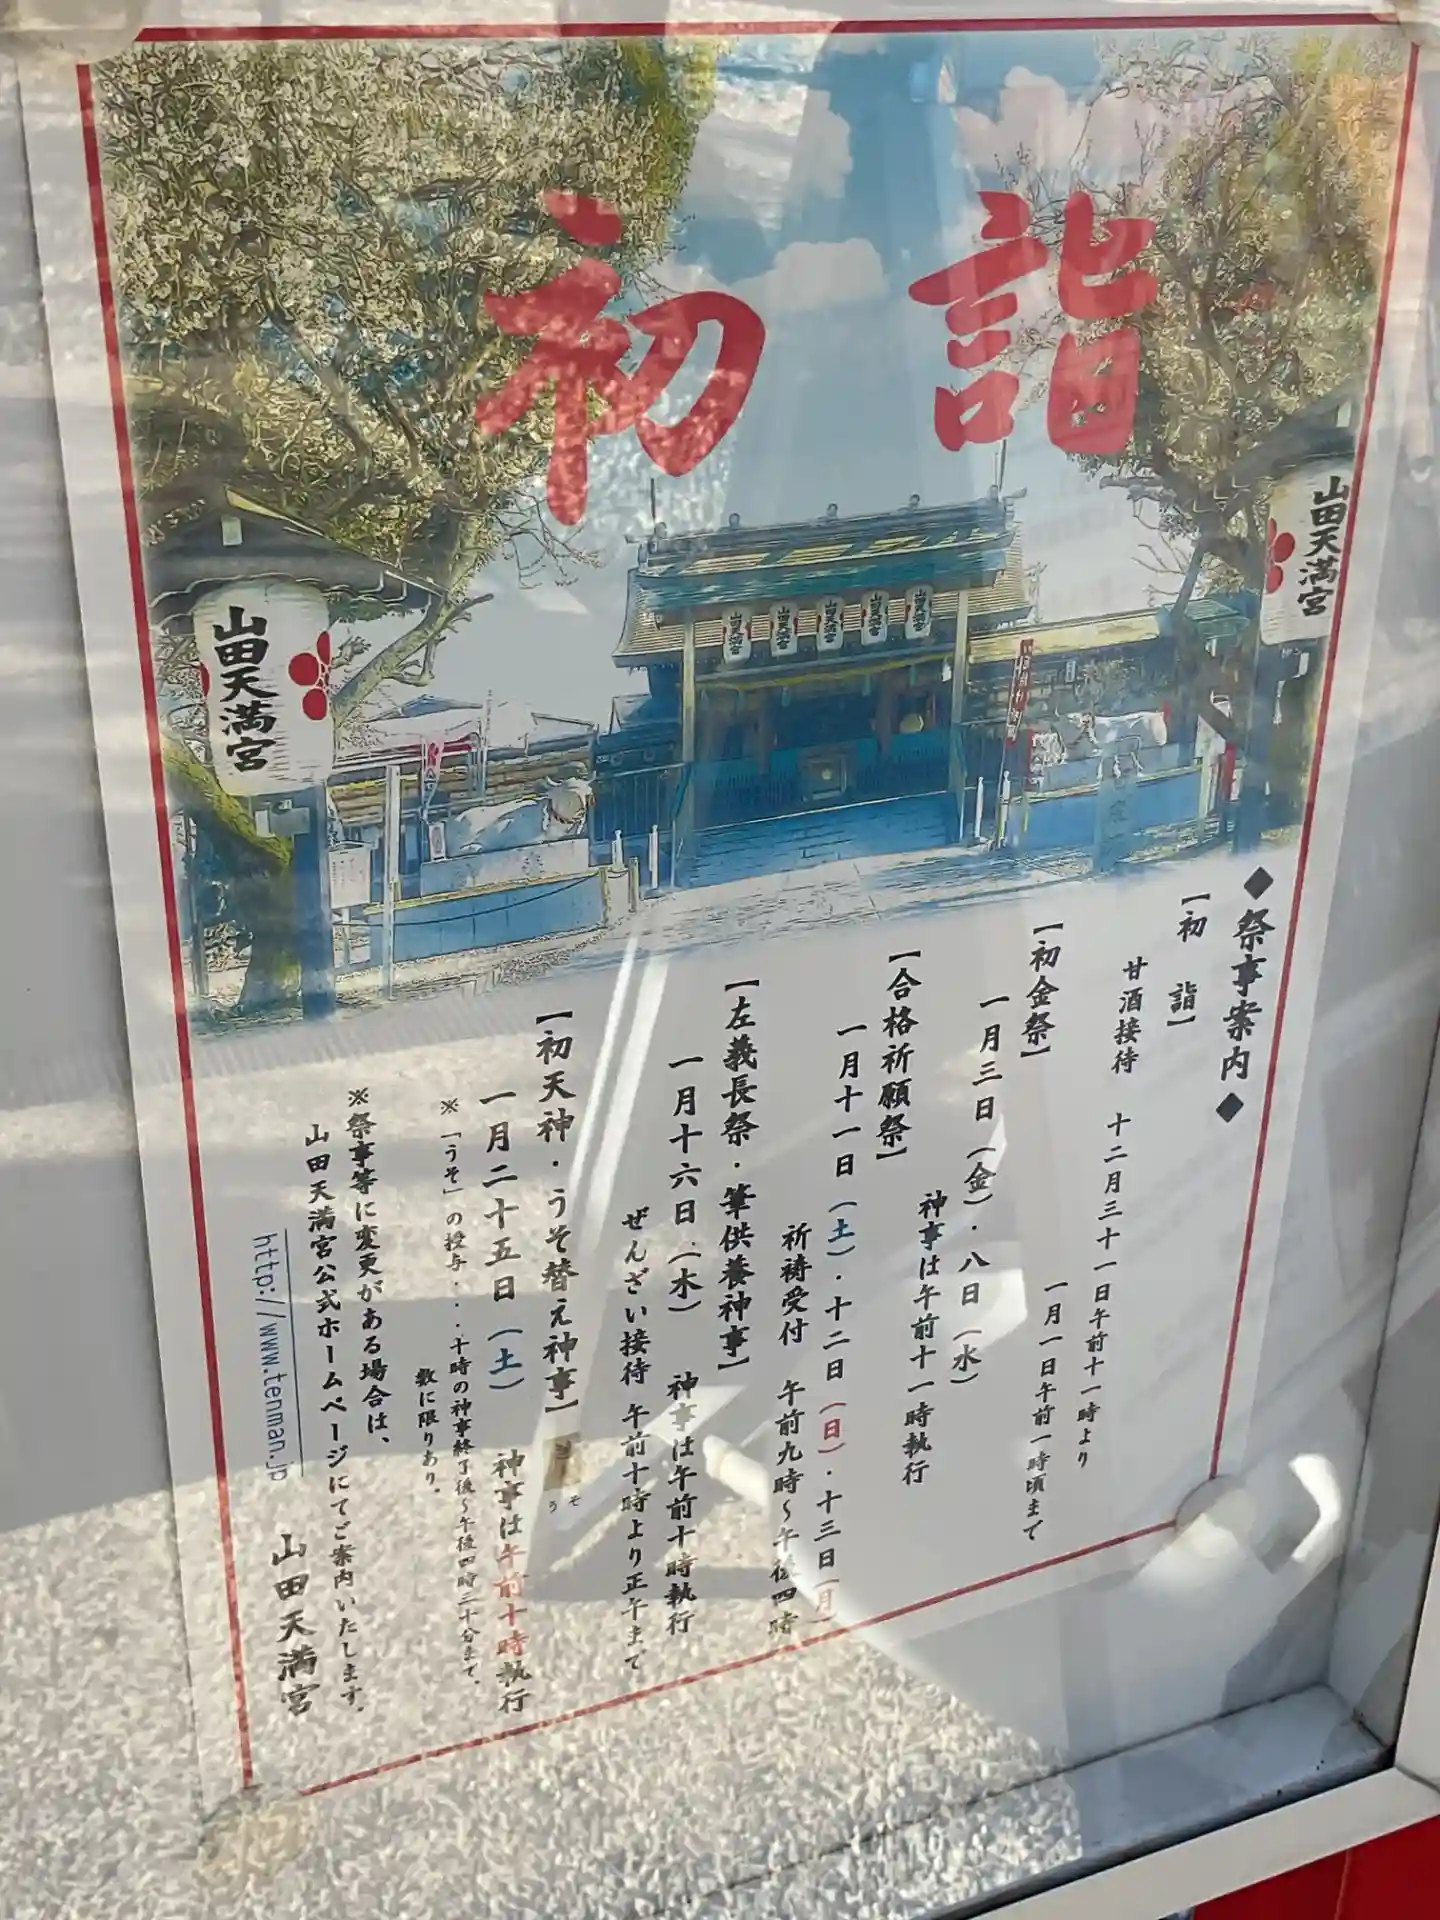 初 詣
山田天満宮
山田天満宮
山田天満宮
山田天満宮
山田天満宮
山田天満宮
山田天満宮
◆祭事案内◆
【初 詣】
甘酒接待 十二月三十一日午前十一時より
一月一日午前一時頃まで
【初金祭】
一月三日(金)・八日(水)
神事は午前十一時執行
【合格祈願祭】
一月十一日(土)・十二日(日)・十三日(月)
祈祷受付 午前九時～午後四時
【左義長祭・筆供養神事】
一月十六日(木) 神事は午前十時執行
ぜんざい接待 午前十時より正午まで
【初天神・うそ替え神事】
うそ
一月二十五日(土) 神事は午前十時執行
※「うそ」の授与・・・十時の神事終了後～午後四時三十分まで。
数に限りあり。
※祭事等に変更がある場合は、
山田天満宮公式ホームページにてご案内いたします。
http://www.tenman.jp
山田天満宮